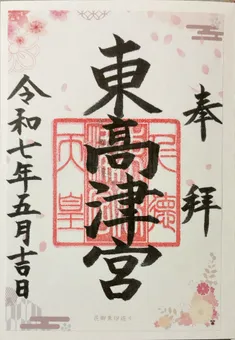 奉拝
東高津宮
仁徳天皇
令和七年五月吉日